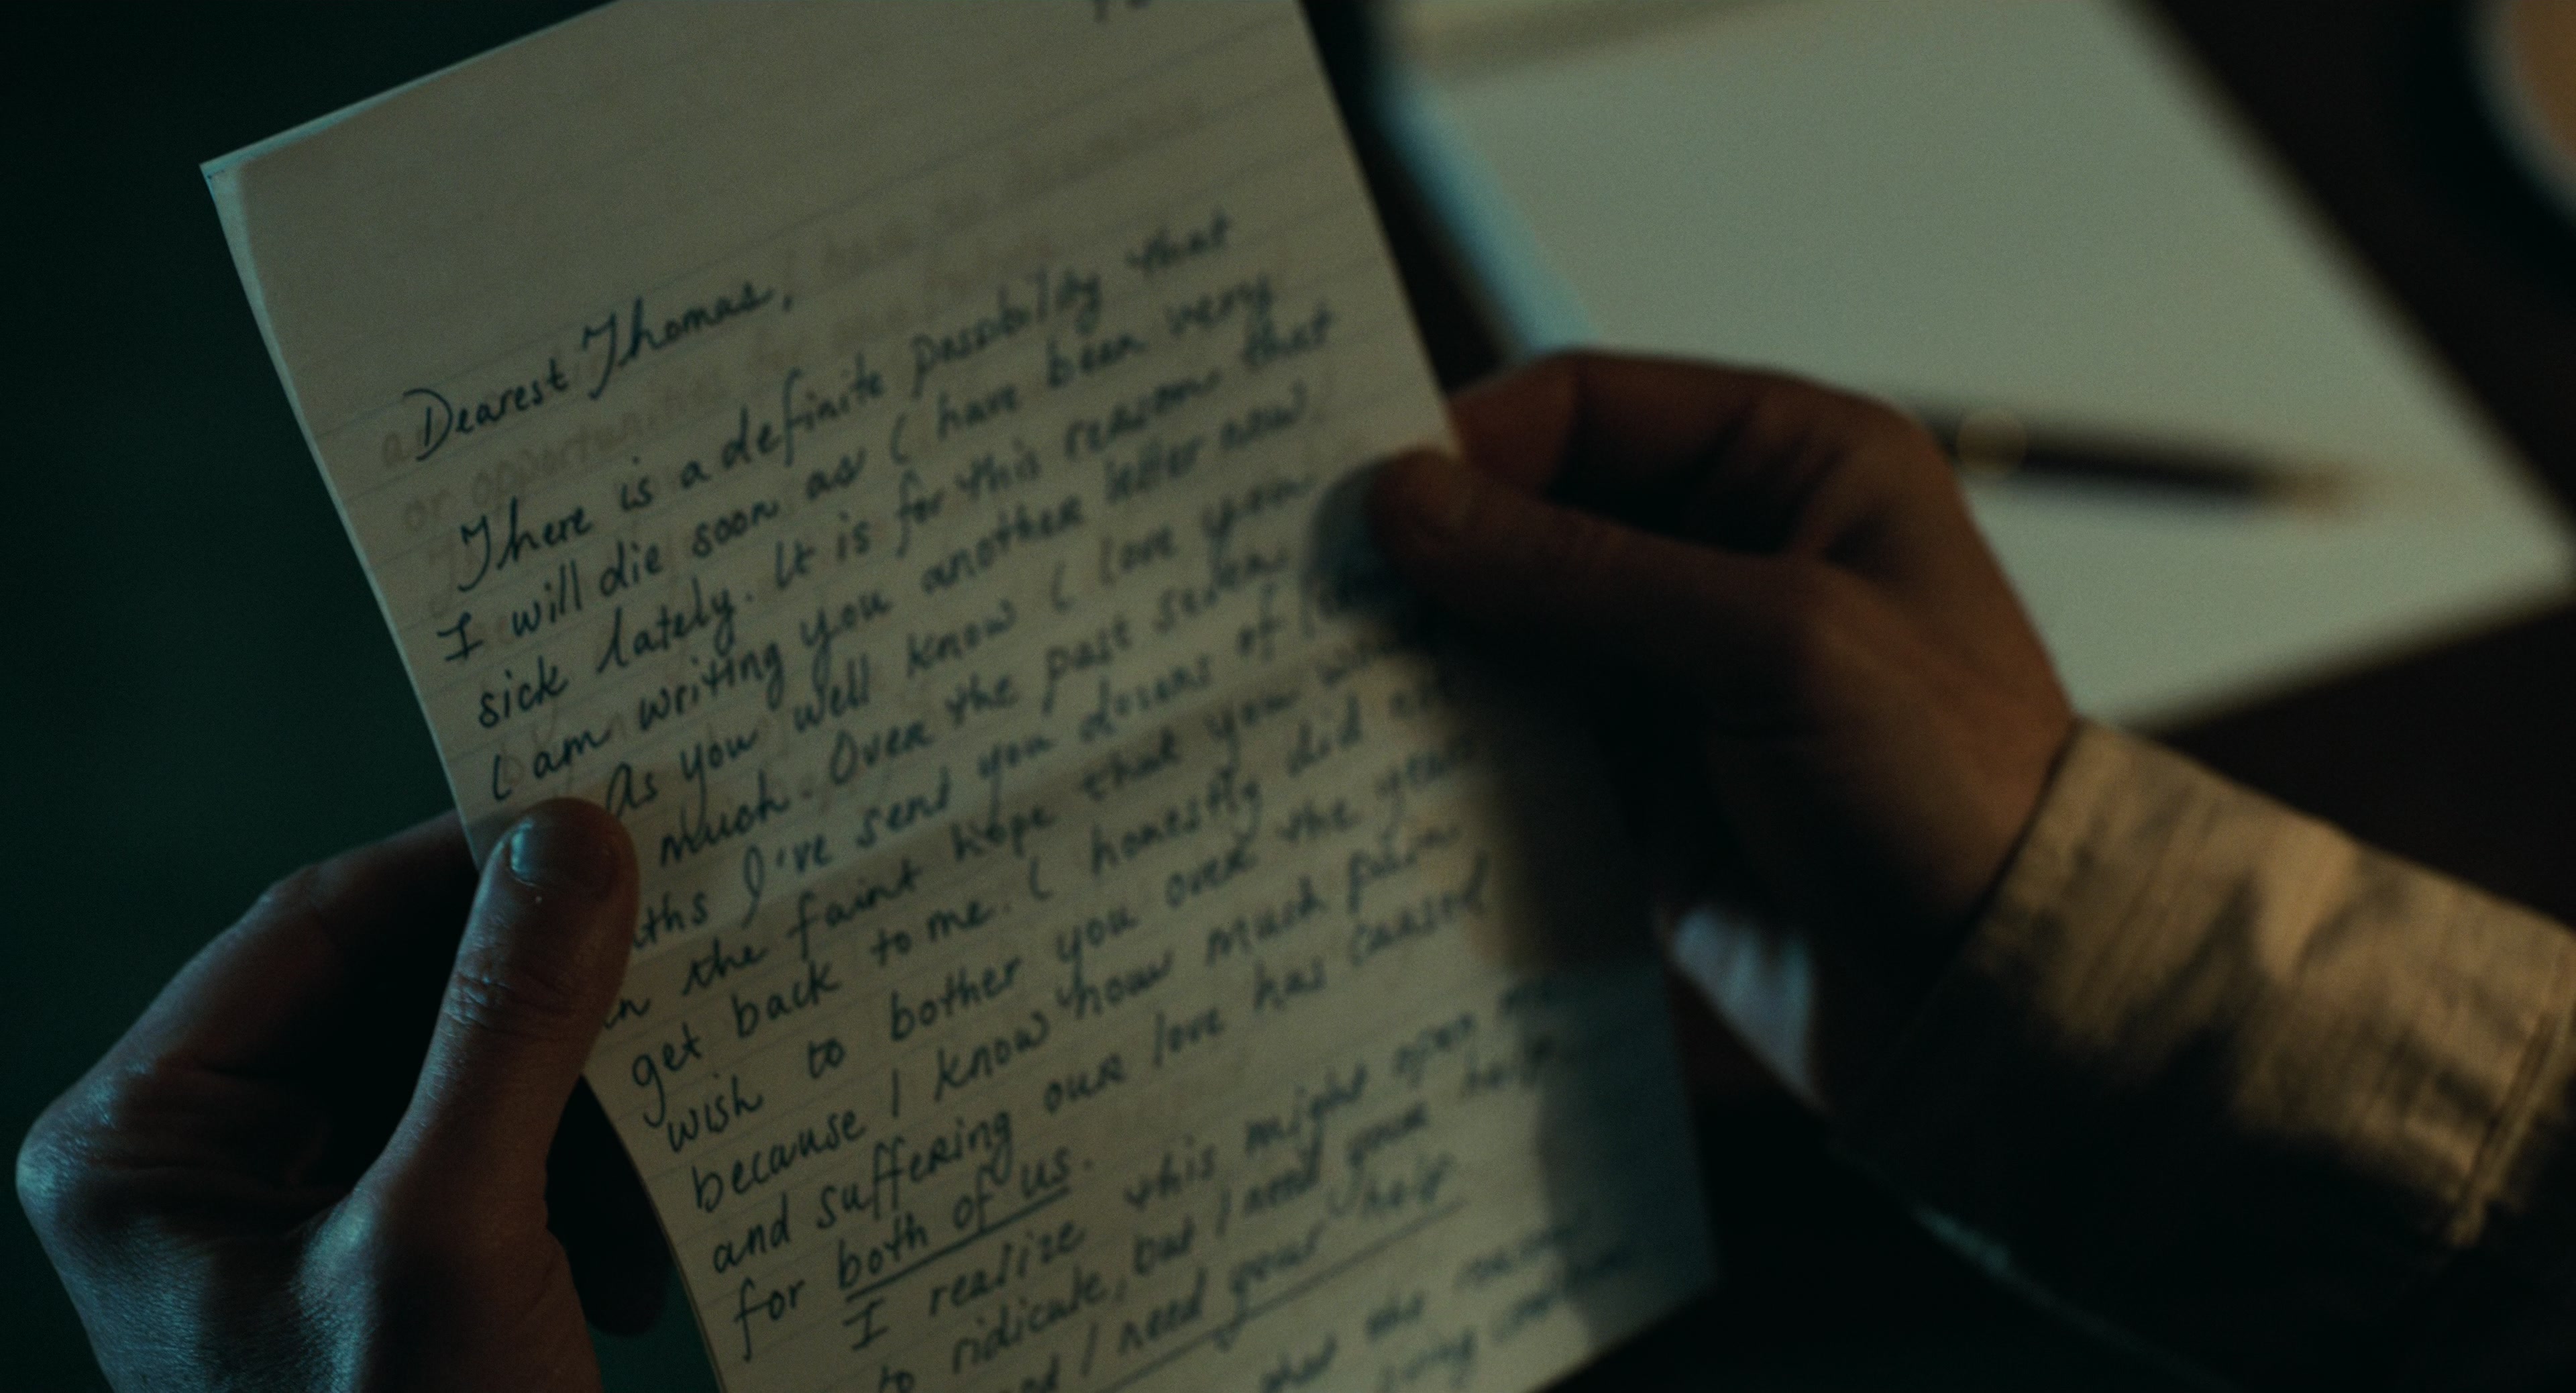 Dearest Thomas,
There is a definite possibility that
I will die soon as I have been very
sick lately. It is for this reason that
I am writing you another letter now.
As you well know I love you
much. Over the past seven
ths I've sent you dozens of
in the faint hope that you
get back to me. I honestly did
wish to bother you over the years
because I know how much pain
and suffering our love has caused
for both of us.
I realize this might open me
to ridicule, but I need your help.
I need your help